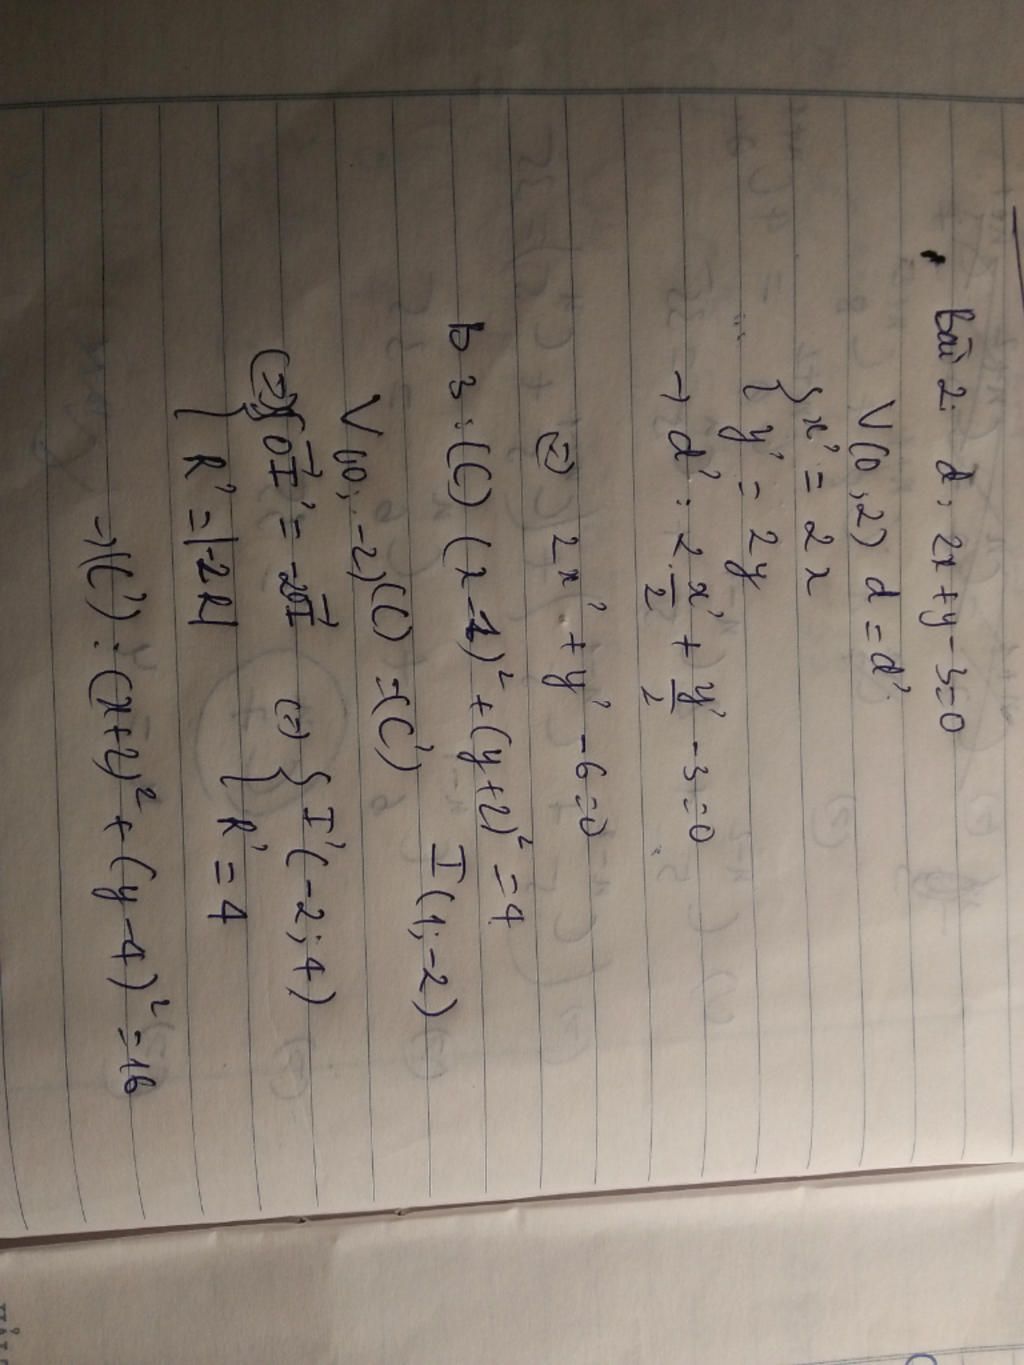 Bài 2: d: 2x + y - 3 = 0
V(0,2) d = d'
{ x' = 2x
{ y' = 2y
→ d': 2.x'/2 + y'/2 - 3 = 0
(=) 2x' + y' - 6 = 0
b 3: (C) (x - 1)² + (y + 2)² = 4
I(1; -2)
V(0; -2) (C) = (C')
(=) { OI' = -2OI (=) { I'(-2; 4)
{ R' = |-2R| { R' = 4
→ (C'): (x+2)² + (y - 4)² = 16